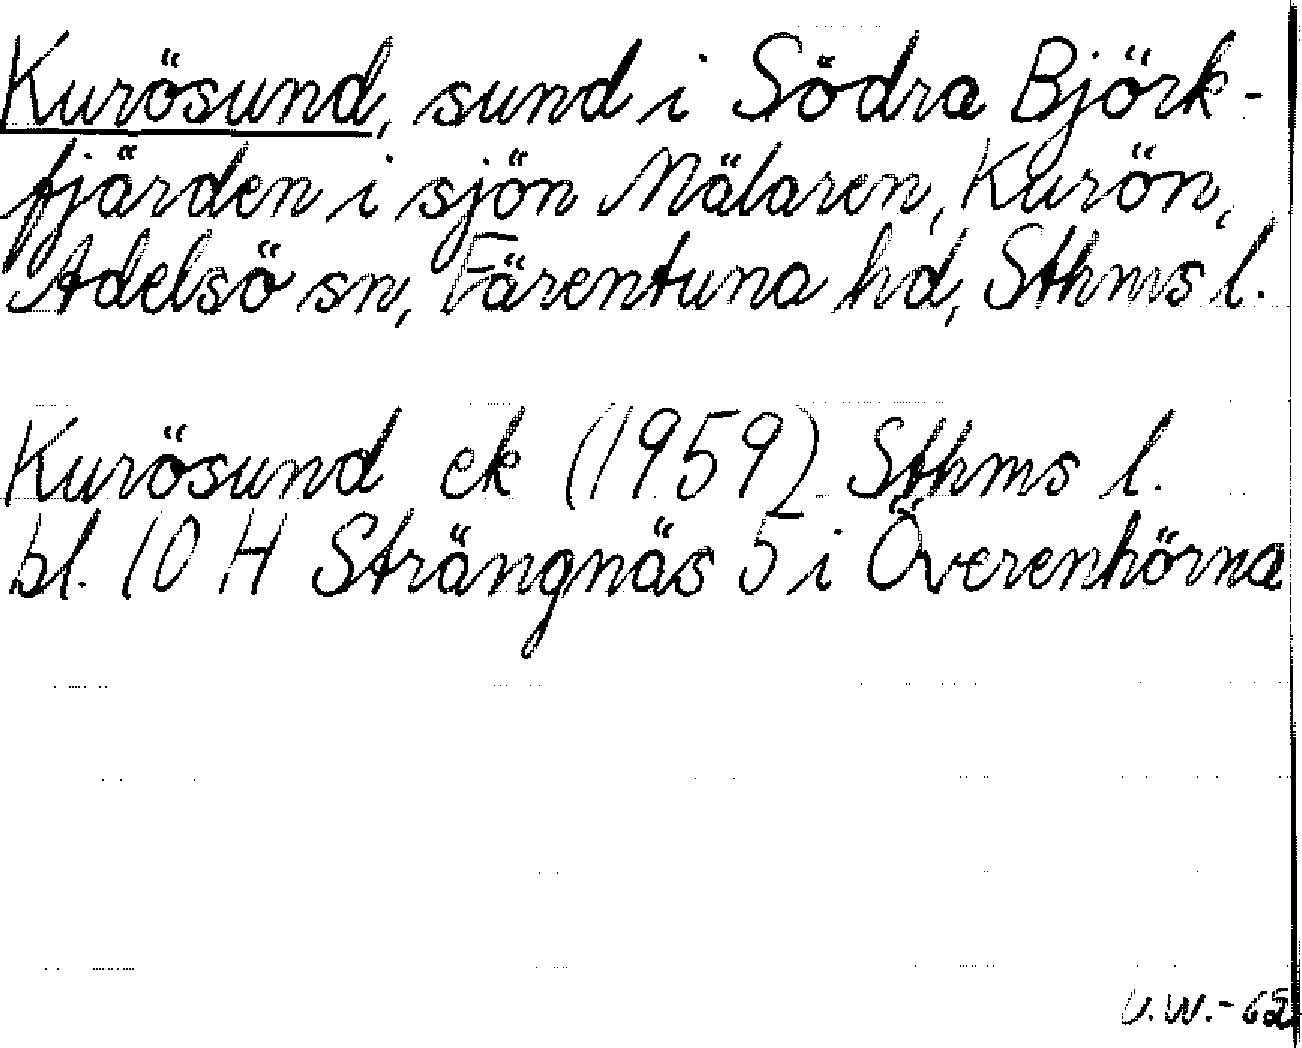 Kurösund, sund i Södra Björk-
fjärden i sjön Mälaren, Kurön,
Adelsö sn, Färentuna hd, Sthms l.
Kurösund ek (1959) Sthms l.
bl. 10 H Strängnäs 5 i Överenhörna
V.W.-65